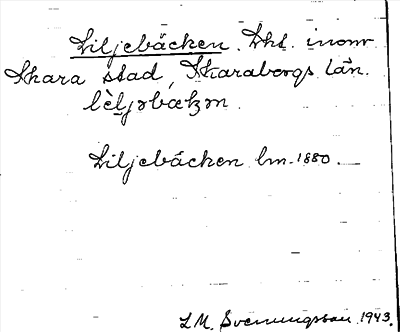 Liljebäcken. Lht. inom
Skara stad, Skaraborgs län.
lèljəbækən.
Liljebäcken lm. 1880.
L.M. Svenungsson 1943.